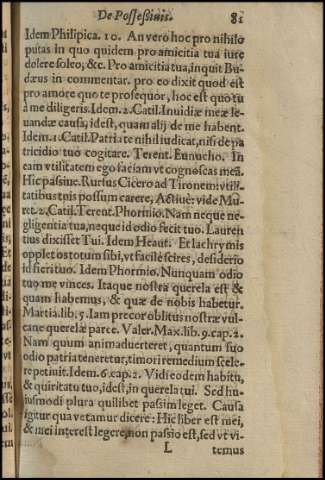 De Possessiuis. 81
Idem Philipica. 10. An vero hoc pro nihilo
putas in quo quidem pro amicitia tua iure
dolere soleo, &c. Pro amicitia tua, inquit Bu-
dæus in commentar. pro eo dixit quod est
pro amore quo te prosequor, hoc est quo tu
à me diligeris. Idem. 2. Catil. Inuidiæ meæ le-
uandæ causa, id est, quam alij de me habent.
Idem. 1. Catil. Patria te nihil iudicat, nisi de pa
tricidio tuo cogitare. Terent. Eunucho. In
eam vtilitatem ego faciam vt cognoscas meā.
Hîc passiuè. Rursus Cicero ad Tironem: vtili-
tatibus tuis possum carere, Actiuè: vide Mu-
ret. 2. Catil. Terent. Phormio. Nam neque ne-
gligentia tua, neque id odio fecit tuo. Lauren
tius dixisset Tui. Idem Heaut. Et lachrymis
opplet os totum sibi, vt facilè scires, desiderio
id fieri tuo. Idem Phormio. Nunquam odio
tuo me vinces. Itaque nostra querela est &
quam habemus, & quæ de nobis habetur.
Martia. lib. 5. Iam precor oblitus nostræ vul-
cane querelæ parce. Valer. Max. lib. 9. cap. 2.
Nam quum animaduerteret, quantum suo
odio patria teneretur, timori remedium scele-
re petinit. Idem. 6. cap. 2. Vidi eodem habitu,
& quiritatu tuo, id est, in querela tui. Sed hu-
iusmodi plura quilibet passim leget. Causa
igitur qua vetamur dicere: Hic liber est mei,
& mei interest legere, non passio est, sed vt vi-
L temus